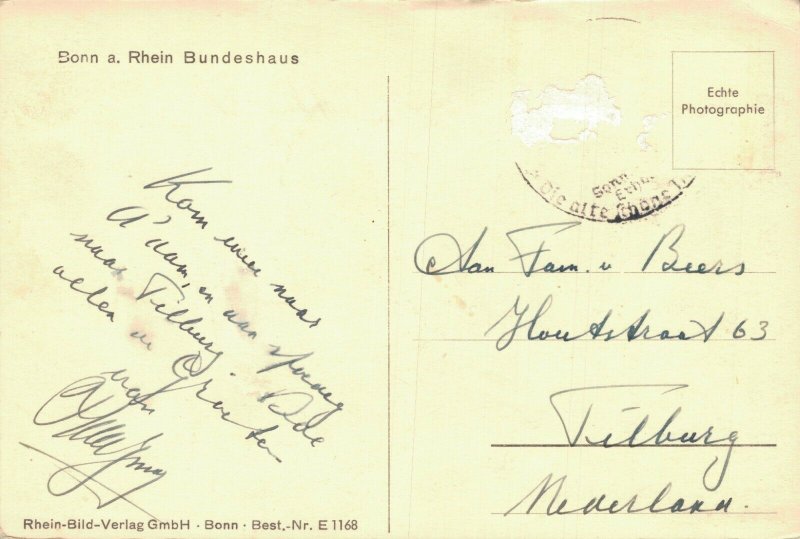 Bonn a. Rhein Bundeshaus
Echte
Photographie
Bonn
Die alte
Kom weer naar
A'dam, en dan
naar Tilburg.
allen de Groeten
van
Aan Fam. v Beers
Houtstraat 63
Tilburg
Nederland.
Rhein-Bild-Verlag GmbH · Bonn · Best.-Nr. E 1168